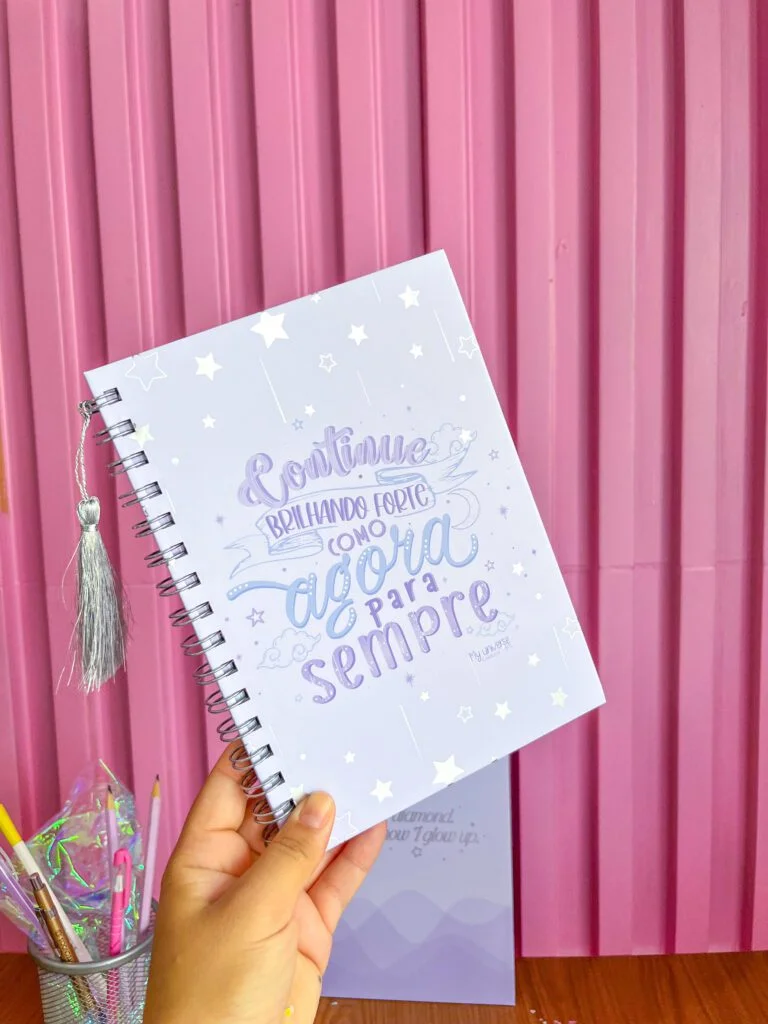 Continue
BRILHANDO FORTE
COMO
agora
para
sempre
My universe
diamond.
how I glow up.